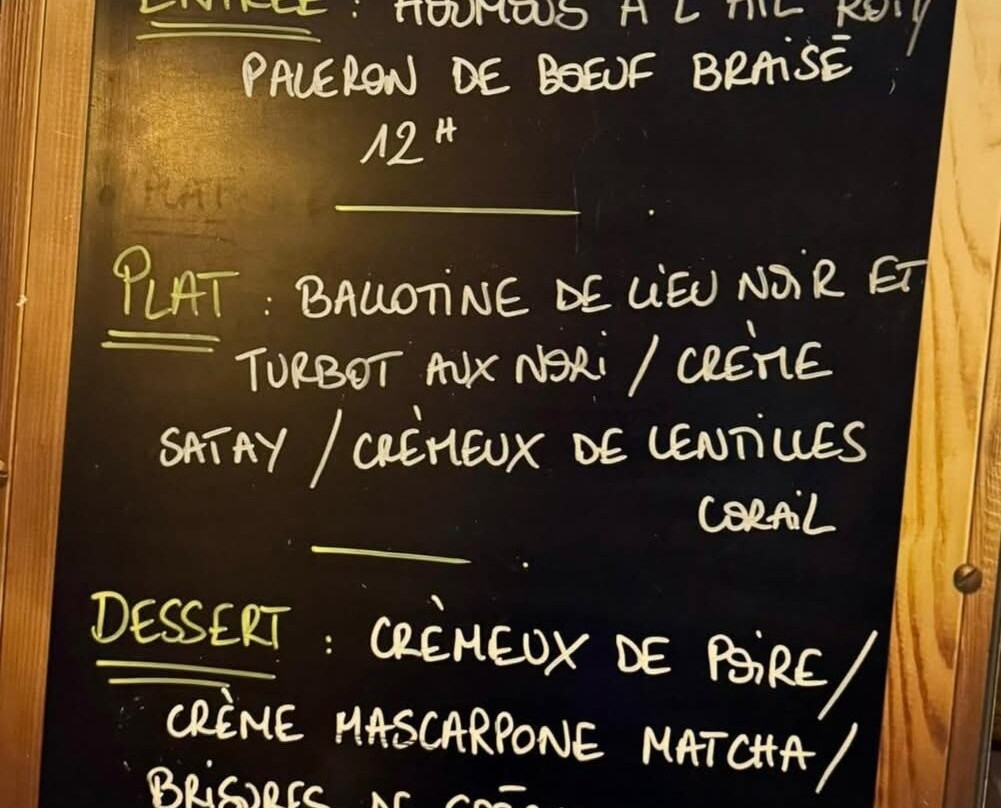 ENTRÉE : HOUMOUS À L'AIL ROTI/
PALERON DE BOEUF BRAISÉ
12H
PLAT
PLAT : BALLOTINE DE LIEU NOIR ET
TURBOT AUX NORI / CRÈME
SATAY / CRÈMEUX DE LENTILLES
CORAIL
DESSERT : CRÈMEUX DE POIRE /
CRÈME MASCARPONE MATCHA /
BRISURES DE